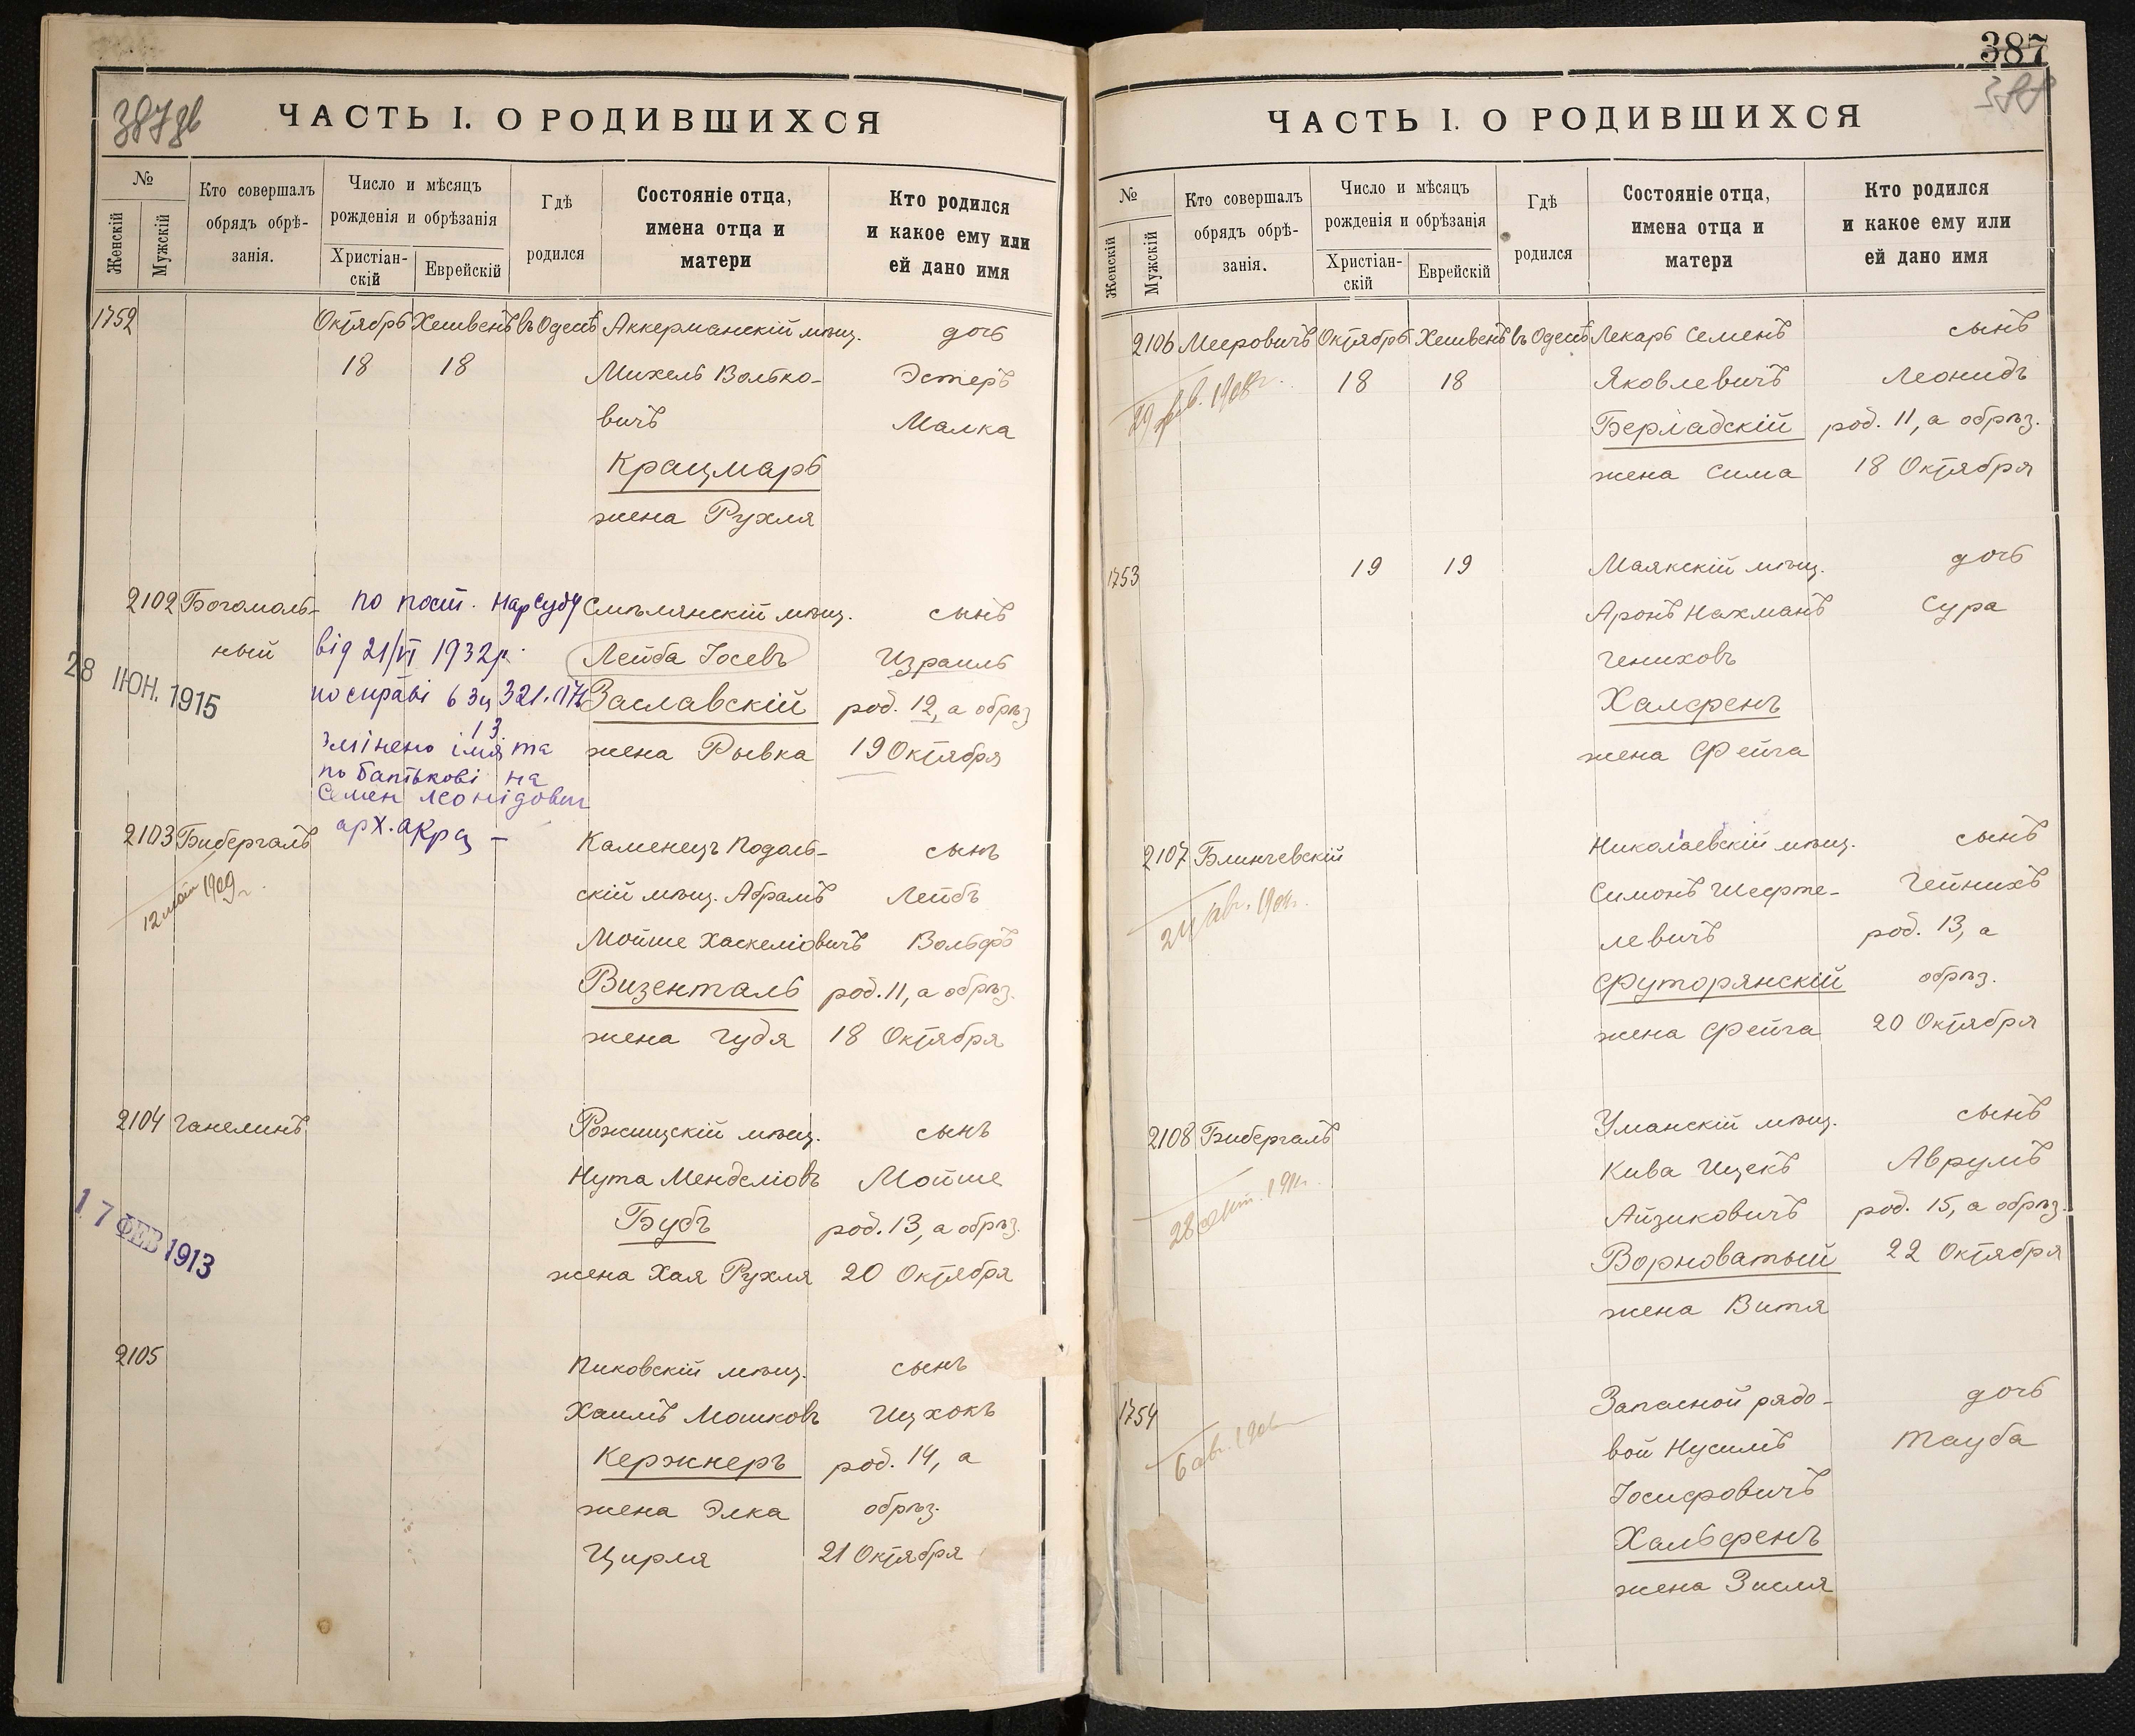 387зв
ЧАСТЬ I. О РОДИВШИХСЯ
№
Женскій
Мужскій
Кто совершалъ
обрядъ обрѣ-
занія.
Число и мѣсяцъ
рожденія и обрѣзанія
Христіан-
скій
Еврейскій
Гдѣ
родился
Состояніе отца,
имена отца и
матери
Кто родился
и какое ему или
ей дано имя
1752 Октябрь Хешвенъ въ Одессѣ Аккерманскій мѣщ. дочь
18 18 Михель Волько- Эстеръ
вичъ Малка
Крацмарь
жена Рухля
2102 Богомоль- по пост. Нарсуду Смѣлянскій мѣщ. сынъ
ный від 21/VI 1932р. Лейба Іосевъ Израиль
28 ІЮН. 1915
по справі 6 Зц 321. Заславскій род. 12, а обрѣз
13.
змінено імя та жена Рывка 19 Октября
по батькові на
Семен Леонідович
2103 Бибергалъ арх. Каменецъ Подоль- сынъ
12 мая 1909 г. скій мѣщ. Абрамъ Лейбъ
Мойше Хаскеліовичъ Вольфъ
Визенталь род. 11, а обрѣз.
жена Гудя 18 Октября
2104 Ганелинъ Рожищскій мѣщ. сынъ
Нута Менделіовъ Мойше
17 ФЕВ 1913
Бубъ род. 13, а обрѣз.
жена Хая Рухля 20 Октября
2105 Пиковскій мѣщ. сынъ
Хаимъ Мошковъ Ицхокъ
Кержнеръ род. 14, а
жена Элка обрѣз.
Цирля 21 Октября
387
388
ЧАСТЬ I. О РОДИВШИХСЯ
№
Женскій
Мужскій
Кто совершалъ
обрядъ обрѣ-
занія.
Число и мѣсяцъ
рожденія и обрѣзанія
Христіан-
скій
Еврейскій
Гдѣ
родился
Состояніе отца,
имена отца и
матери
Кто родился
и какое ему или
ей дано имя
2106 Мееровичъ Октябрь Хешвенъ въ Одессѣ Лекарь Семенъ сынъ
18 18 Яковлевичъ Леонидъ
Берладскій род. 11, а обрѣз.
жена Сима 18 Октября
1753 19 19 Маякскій мѣщ. дочь
Аронъ Нахманъ Сура
Гениховъ
Халфенъ
жена Фейга
2107 Блинчевскій Николаевскій мѣщ. сынъ
Симонъ Шефте- Гейнихъ
левичъ род. 13, а
Футорянскій обрѣз.
жена Фейга 20 Октября
2108 Бибергалъ Уманскій мѣщ. сынъ
Кива Ицекъ Аврумъ
Айзиковичъ род. 15, а обрѣз.
Ворноватый 22 Октября
жена Витя
1754 Запасной рядо- дочь
вой Нусимъ Тауба
Іосифовичъ
Хальфенъ
жена Зисля